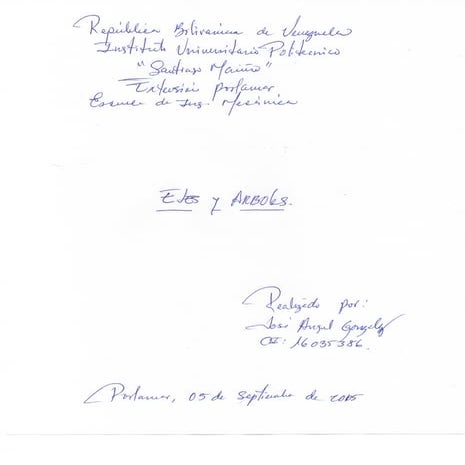 República Bolivariana de Venezuela
Instituto Universitario Politecnico
"Santiago Mariño"
Extensión Porlamar
Escuela de Ing. Mecánica
EJES y ARBOLES.
Realizado por:
José Angel Gonzalez
CI: 16035386.
Porlamar, 05 de Septiembre de 2005